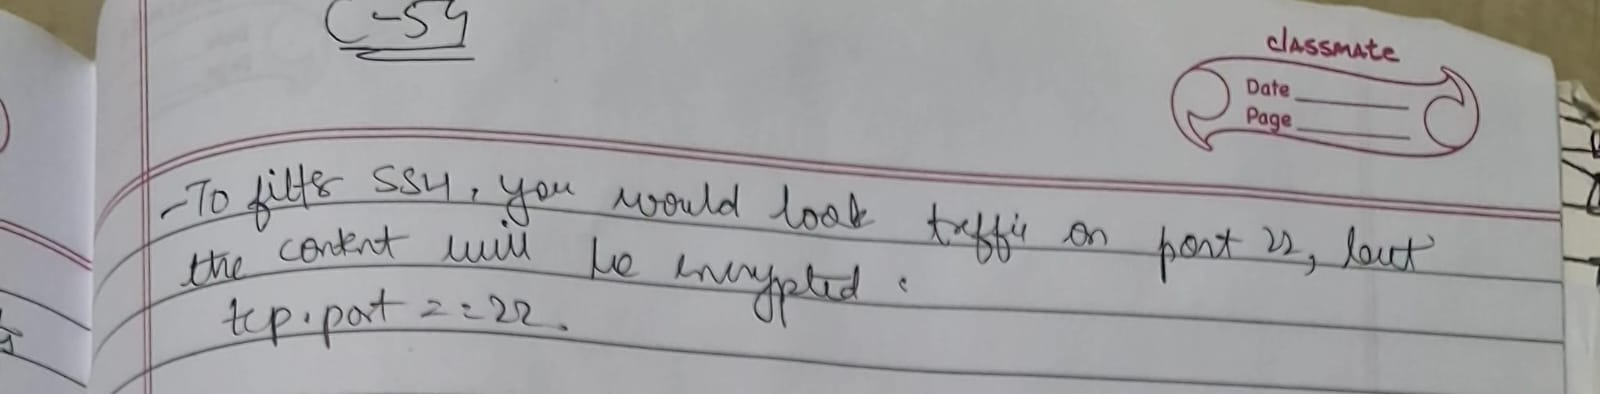 C-54
classmate
Date
Page
- To filter SSH, you would look traffic on port 22, but
the content will be encrypted.
tcp.port == 22.